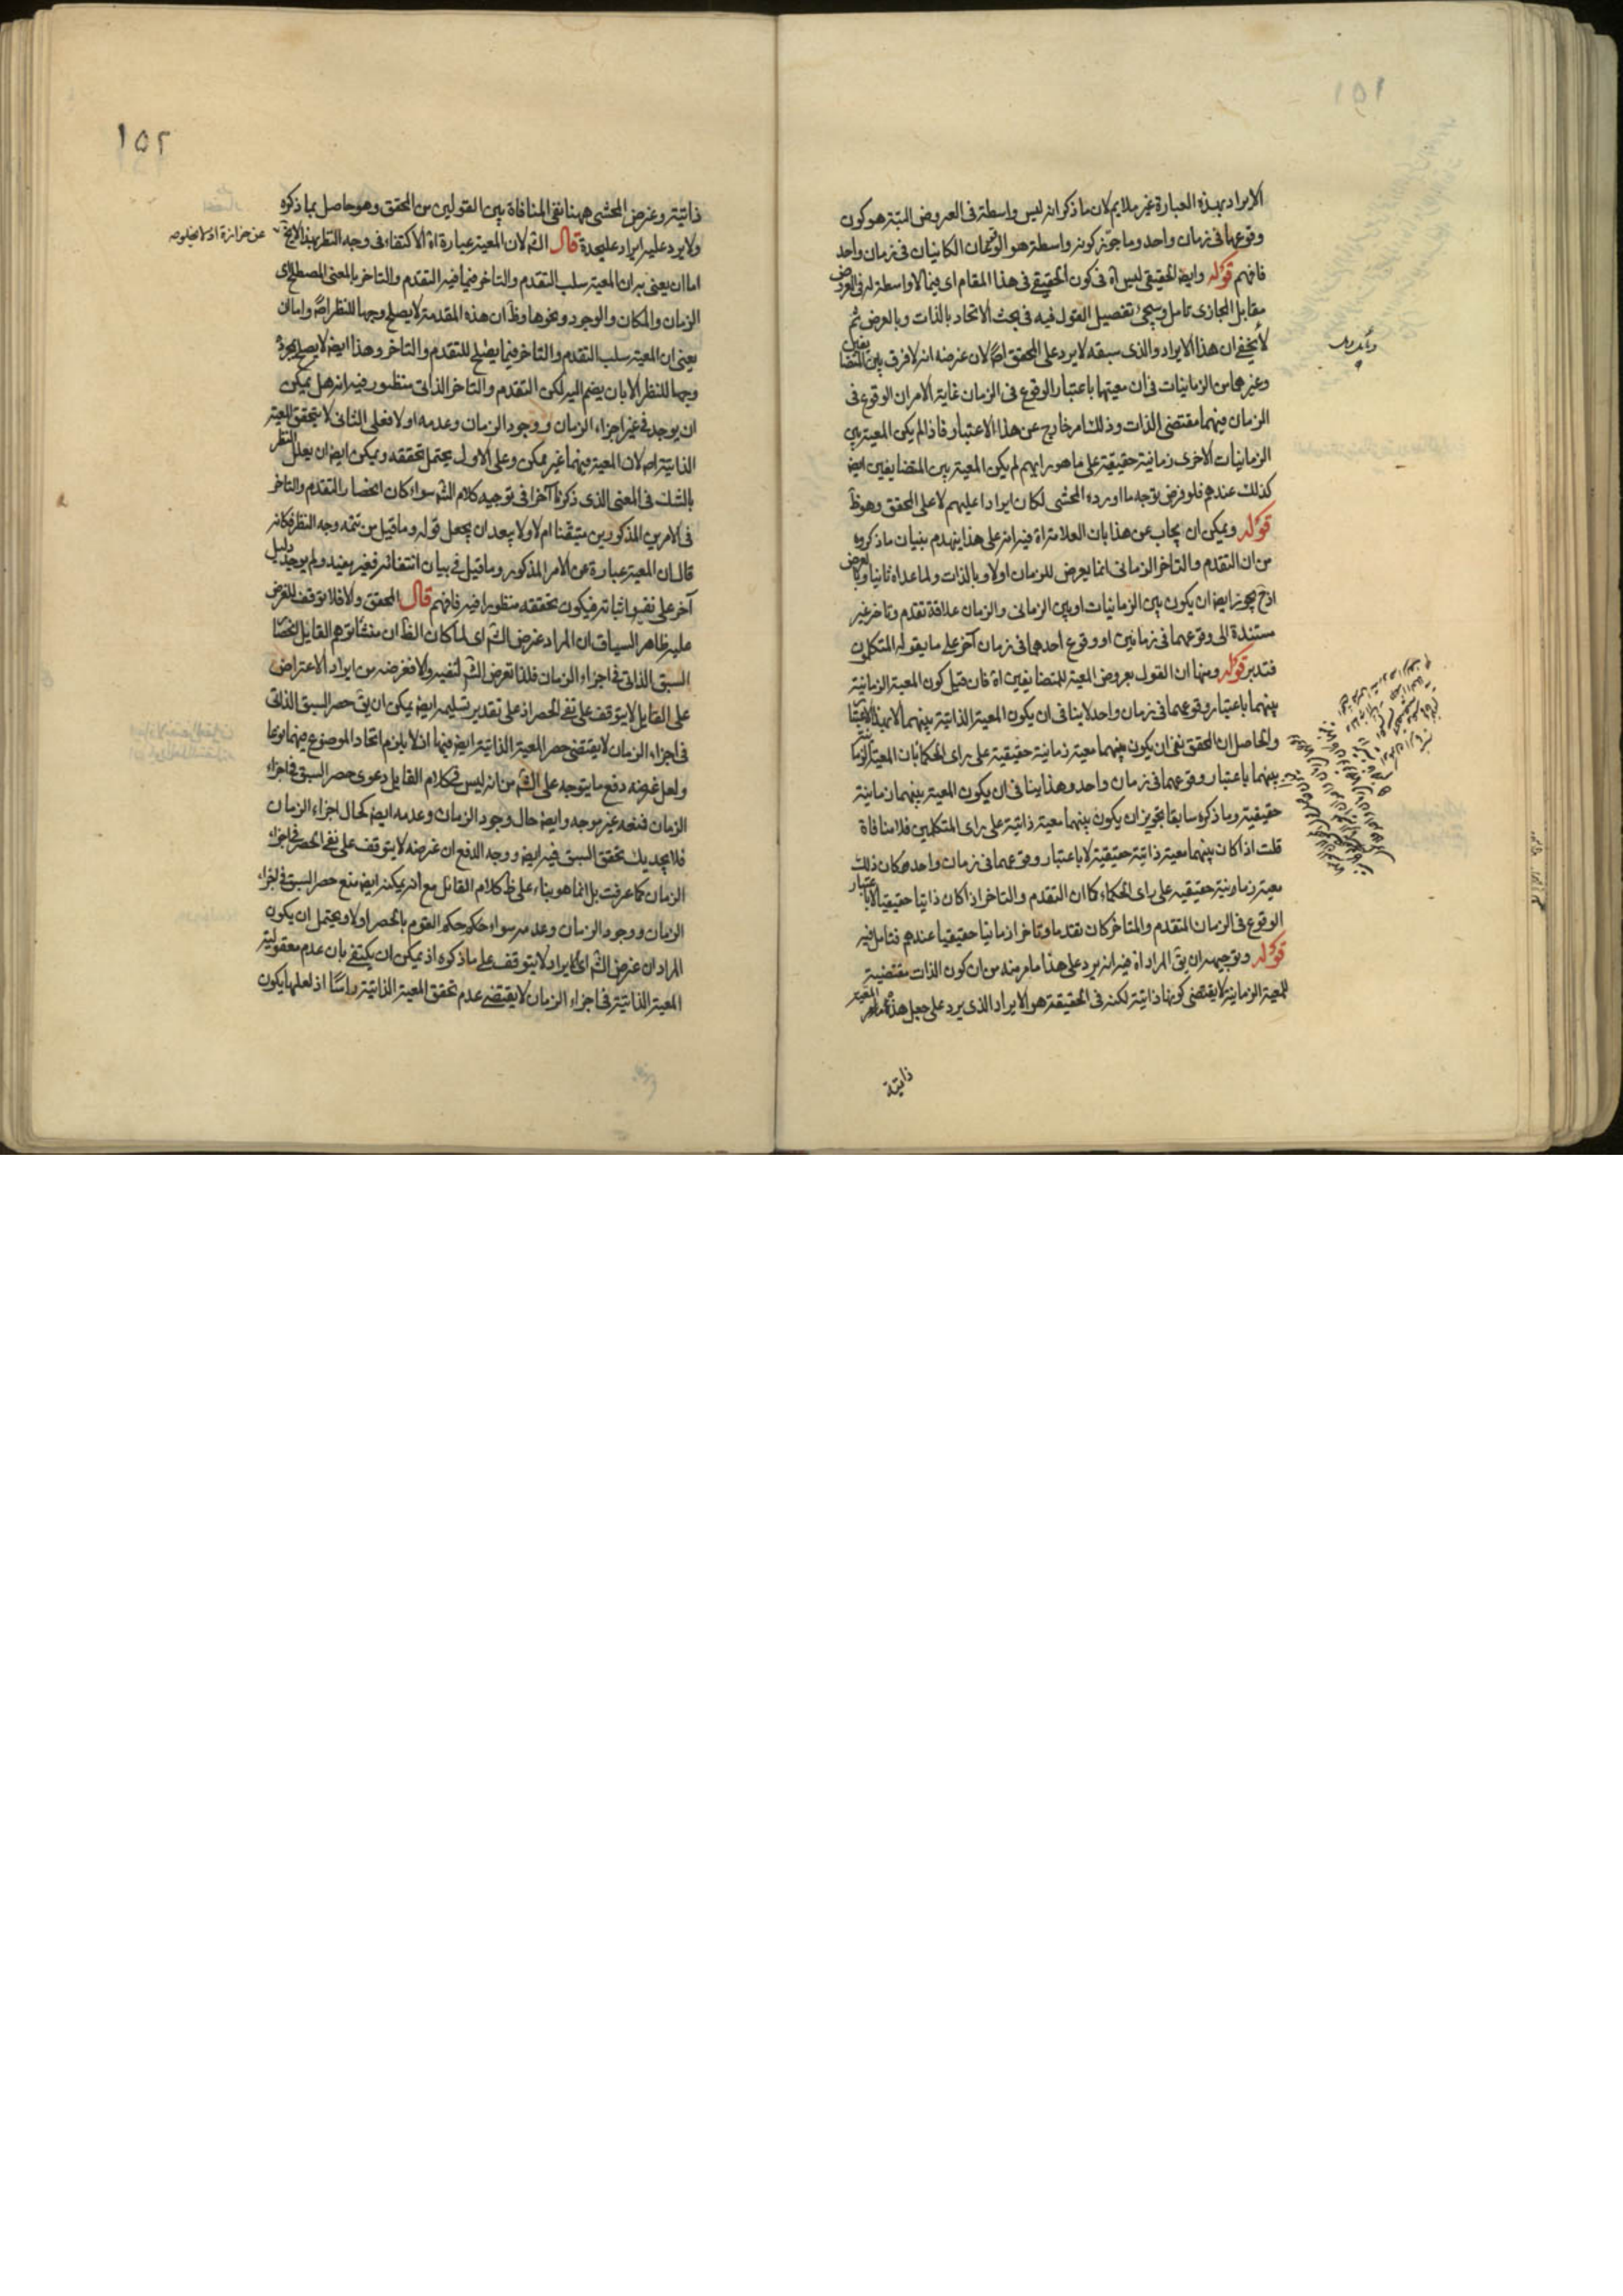 ١٥١
الايراد بهذه العبارة غير ملايم لان ما ذكر انه ليس واسطة فى العروض البتة هو كون
وقوعها فى زمان واحد وما جوّز كونه واسطة هو الوقتان الكائنان فى زمان واحد
فافهم قوله وايضا الحقيقى ليس اه فى كون الحقيقى فى هذا المقام اى فيما لا واسطة له فى العروض
مقابل المجازى تامل وسيجئ تفصيل القول فيه فى بحث الاتحاد بالذات وبالعرض ثم
لا يخفى ان هذا الايراد والذى سبقه لا يرد على المحقق اصلا لان غرضه انه لا فرق بين المتضايفين
وغيرهما من الزمانيات فى ان معيتها باعتبار الوقوع فى الزمان غاية الامر ان الوقوع فى
الزمان فيهما مقتضى الذات وذلك امر خارج عن هذا الاعتبار فاذا لم يكن المعية بين
الزمانيات الاخرى زمانية حقيقية على ما هو رايهم لم يكن المعية بين المتضايفين ايضا
كذلك عندهم فلو فرض توجه ما اورده المحشى لكان ايرادا عليهم لا على المحقق وهو ظ
قوله ويمكن ان يجاب عن هذا بان العلامة اه فيه انه على هذا ينهدم بنيان ما ذكروه
من ان التقدم والتاخر الزمانى انما يعرض للزمان اولا وبالذات ولما عداه ثانيا وبالعرض
اذ ح يجوز ايضا ان يكون بين الزمانيات او بين الزمانى والزمان علاقة تقدم وتاخر غير
مستندة الى وقوعهما فى زمانين او وقوع احدهما فى زمان آخر على ما يقوله المتكلمون
فتدبر قوله ومنها ان القول بعروض المعية للمتضايفين اه فان قيل كون المعية الزمانية
بينهما باعتبار وقوعهما فى زمان واحد لا ينافى ان يكون المعية الذاتية بينهما لا بهذا الاعتبار
والحاصل ان المحقق نفى ان يكون بينهما معية زمانية حقيقية على راى الحكما بان المعية الزمانية
بينهما باعتبار وقوعهما فى زمان واحد وهذا ينافى ان يكون المعية بينهما زمانية
حقيقية وما ذكره سابقا تجويز ان يكون بينهما معية ذاتية على راى المتكلمين فلا منافاة
قلت اذا كان بينهما معية ذاتية حقيقية لا باعتبار وقوعهما فى زمان واحد كان ذلك
معية زمانية حقيقيه على راى الحكماء كما ان التقدم والتاخر اذا كان ذاتيا حقيقيا لا باعتبار
الوقوع فى الزمان المتقدم والمتاخر كان تقدما وتاخرا زمانيا حقيقيا عندهم فتامل فيه
قوله وتوجيهه ان يق المراد اه فيه انه يرد على هذا ما مر منه من ان كون الذات مقتضية
للمعية الزمانية لا يقتضى كونها ذاتية لكنه فى الحقيقة هو الايراد الذى يرد على جعل هذه المعية
ذاتية
١٥٢
ذاتية وغرض المحشى ههنا نفى المنافاة بين القولين من المحقق وهو حاصل بما ذكره
ولا يرد عليه ايراد عليحدة قال الش لان المعية عبارة اه الاكتفاء فى وجه النظر بهذا لا يخ
عن حزازة اذ لا يخلو
اما ان يعنى به ان المعية سلب التقدم والتاخر فيما فيه التقدم والتاخر بالمعنى المصطلح اى
الزمان والمكان والوجود ونحوها وظ ان هذه المقدمة لا يصلح وجها للنظر اصلا واما ان
يعنى ان المعية سلب التقدم والتاخر فيما يصلح للتقدم والتاخر وهذا ايضا لا يصلح بمجرده
وجها للنظر الا بان يضم اليه لكن التقدم والتاخر الذاتى منظور فيه انه هل يمكن
ان يوجد فى غير اجزاء الزمان ووجود الزمان وعدمه او لا فعلى الثانى لا يتحقق المعية
الذاتية اصلا لان المعية فيهما غير ممكن وعلى الاول يحتمل تحققه ويمكن ايضا ان يعلل النظر
بالشك فى المعنى الذى ذكرنا آخرا فى توجيه كلام الش سواء كان انحصار التقدم والتاخر
فى الامرين المذكورين متيقنا ام لا ولا يبعد ان يجعل قوله وما قيل من تتمه وجه النظر فكانه
قال ان المعية عبارة عن الامر المذكور وما قيل فى بيان انتفائه فغير مفيد ولم يوجد دليل
آخر على نفيه واثباته فيكون تحققه منظورا فيه فافهم قال المحقق والا فلا توقف للغرض
عليه ظاهر السياق ان المراد غرض الش اى لما كان الظ ان منشا توهم القايل انحصار
السبق الذاتى فى اجزاء الزمان فلذا تعرض الش لنفيه والا فغرضه من ايراد الاعتراض
على القايل لا يتوقف على نفى الحصر اذ على تقدير تسليمه ايضا يمكن ان يق حصر السبق الذاتى
فى اجزاء الزمان لا يقتضى حصر المعية الذاتية ايضا فيها اذ لا يلزم اتحاد الموضوع فيهما نوعا
ولعل غرضه دفع ما يتوجه على الش من انه ليس فى كلام القايل دعوى حصر السبق فى اجزاء
الزمان فمنعه غير موجه وايضا حال وجود الزمان وعدمه ايضا كحال اجزاء الزمان
فلا يجديك تحقق السبق فيه ايضا ووجه الدفع ان غرضه لا يتوقف على نفى الحصر فى اجزاء
الزمان كما عرفت بل انما هو بناء على ظ كلام القائل مع انه يمكنه ايضا منع حصر السبق فى اجزاء
الزمان ووجود الزمان وعدمه سواء حكم القوم بالحصر او لا ويحتمل ان يكون
المراد ان غرض الش اى الايراد لا يتوقف على ما ذكره اذ يمكن ان يكتفى بان عدم معقولية
المعية الذاتية فى اجزاء الزمان لا يقتضى عدم تحقق المعية الذاتية راسا اذ لعلها يكون